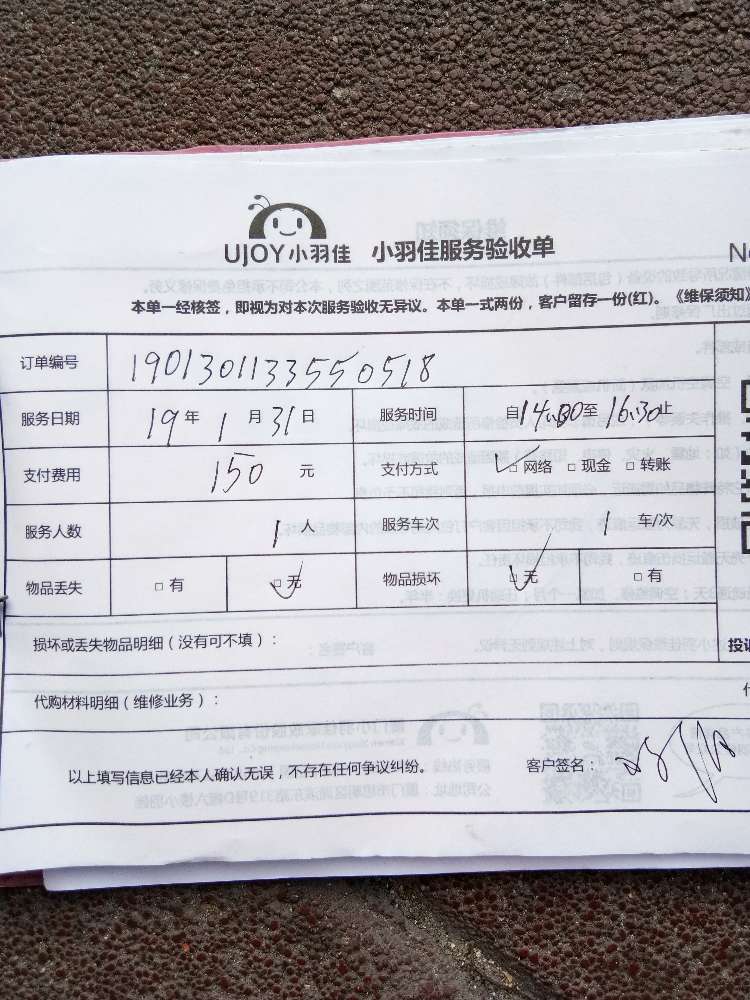 UJOY小羽佳 小羽佳服务验收单
No
本单一经核签，即视为对本次服务验收无异议。本单一式两份，客户留存一份(红)。《维保须知》
订单编号 1901301133550518
服务日期 19年1月31日 服务时间 自14:30至16:30止
支付费用 150元 支付方式 ☑网络 □现金 □转账
服务人数 1人 服务车次 1车/次
物品丢失 □有 ☑无 物品损坏 ☑无 □有
损坏或丢失物品明细（没有可不填）：
投诉
代购材料明细（维修业务）：
以上填写信息已经本人确认无误，不存在任何争议纠纷。 客户签名：